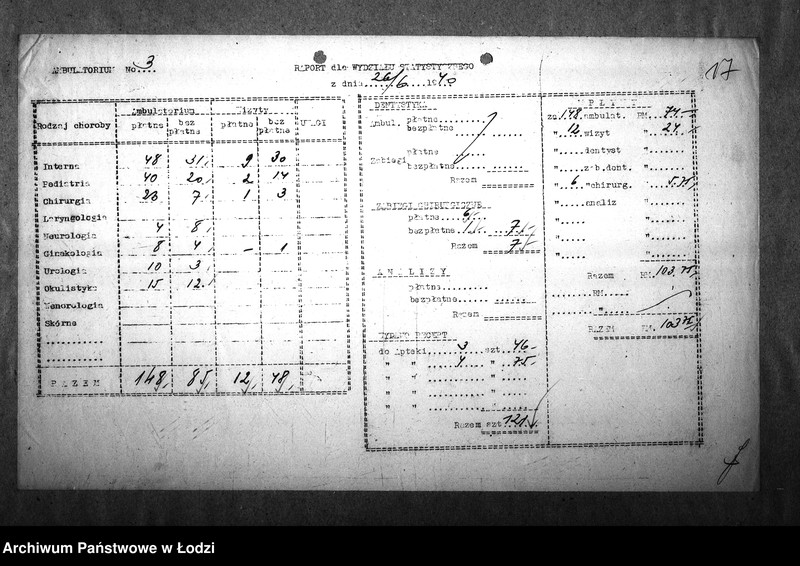 17
AMBULATORIUM No. 3
RAPORT dla WYDZIAŁU STATYSTYCZNEGO
z dnia 26/6 1940
Rodzaj choroby Ambulatorium Wizyty UWAGI
płatne bez płatne płatne bez płatne
Interna 48 31 9 30
Pediatria 40 20 2 14
Chirurgia 23 7 1 3
Laryngologia
Neurologia 4 8
Ginekologia 8 4 — 1
Urologia 10 3
Okulistyka 15 12
Wenerologia
Skórne
RAZEM 148 85 12 48
DENTYSTYKA
Ambul. płatne
bezpłatne
Zabiegi płatne
bezpłatne
Razem
ZABIEGI CHIRURGICZNE
płatne 6
bezpłatne 1 7
Razem 7
ANALIZY
płatne
bezpłatne
Razem
WYDANO RECEPT
do Apteki 3 szt. 46
" " 4 " 75
" " "
" " "
" " "
Razem szt. 121
WPŁATY
za 148 ambulat. RM. 74.—
" 12 wizyt " 24.—
" dentyst "
" zab.dent. "
" 6 chirurg. " 5.75
" analiz "
" "
" "
" "
Razem RM. 103.75
RM.
"
RAZEM RM. 103.75
Archiwum Państwowe w Łodzi